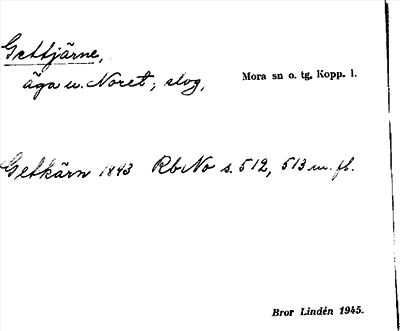 Gettjärne,
äga u. Noret, slog,
Mora sn o. tg, Kopp. l.
Getkärn 1843 RbNo s. 512, 513 m. fl.
Bror Lindén 1945.